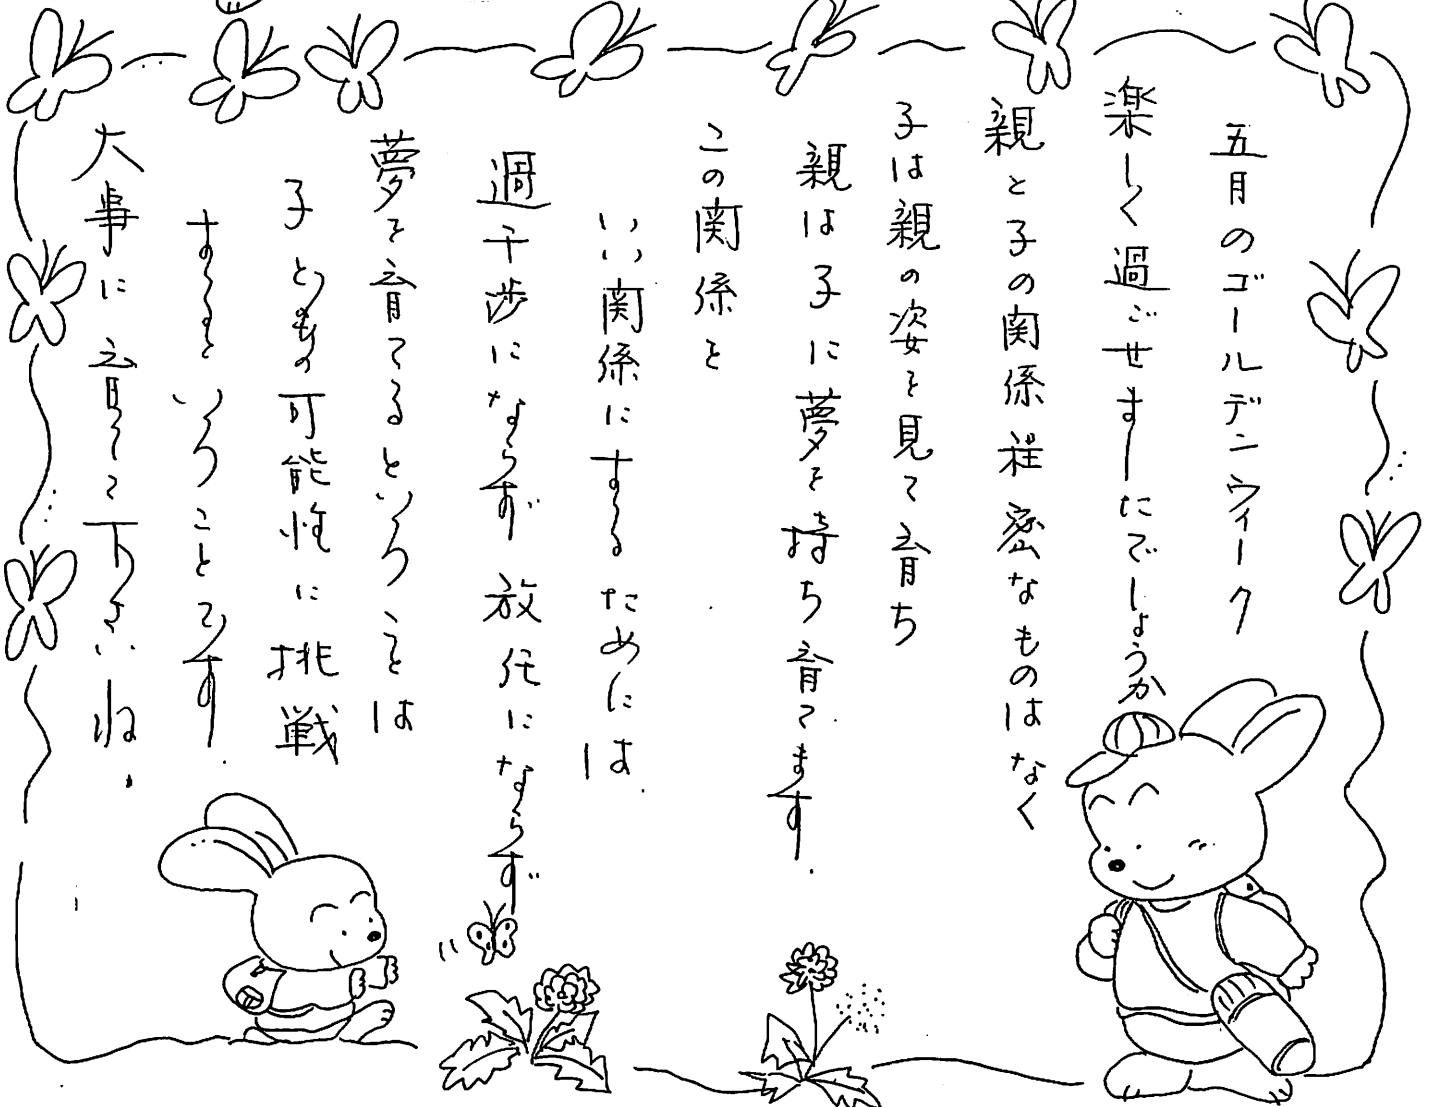 五月のゴールデンウィーク
楽しく過ごせましたでしょうか
親と子の関係程密なものはなく
子は親の姿を見て育ち
親は子に夢を持ち育てます.
この関係を
いい関係にするためには.
過干渉にならず放任にならず
夢を育てるということは
子どもの可能性に挑戦
するということです.
大事に育てて下さいね.